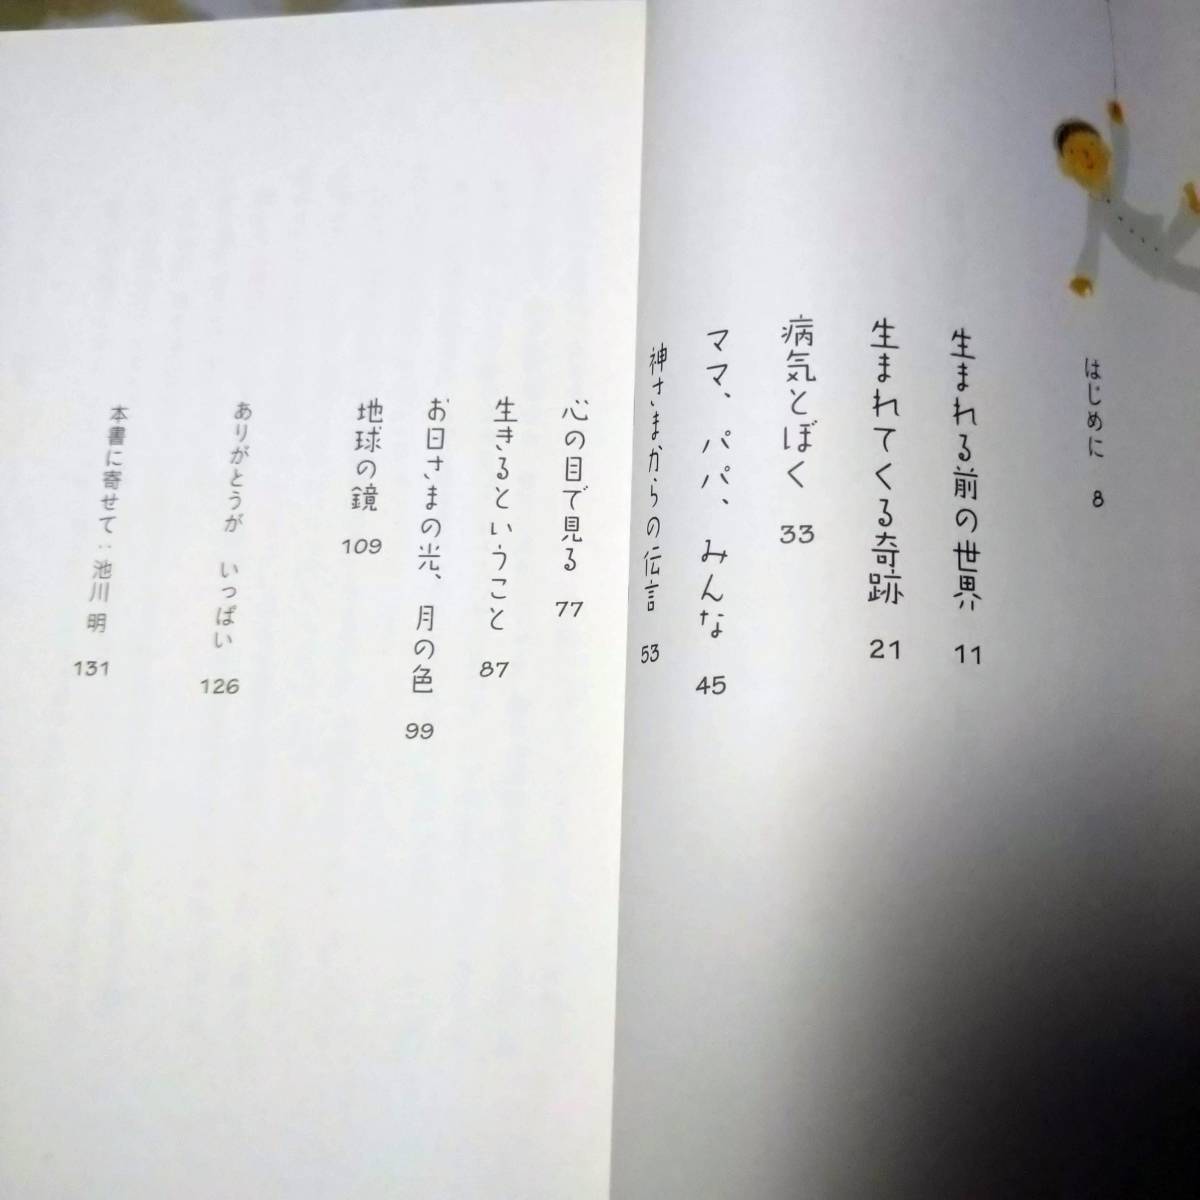 はじめに 8
生まれる前の世界 11
生まれてくる奇跡 21
病気とぼく 33
ママ、パパ、みんな 45
神さまからの伝言 53
心の目で見る 77
生きるということ 87
お日さまの光、月の色 99
地球の鏡 109
ありがとうが いっぱい 126
本書に寄せて:池川 明 131